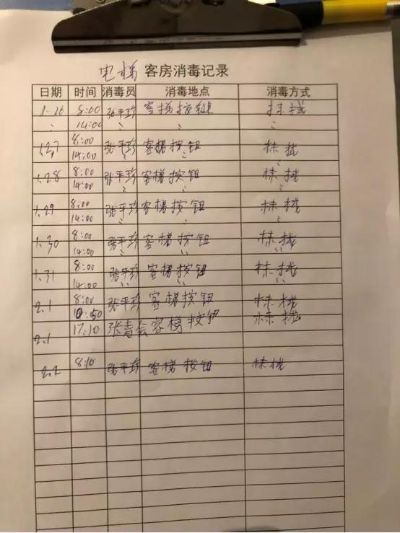 电梯 客房消毒记录
日期 时间 消毒员 消毒地点 消毒方式
8:00 张平珍 客梯按钮
14:00
1.27 8:00 张平珍 客梯按钮 抹拢
14:00
1.28 8:00 张平珍 客梯按钮 抹拢
14:00
1.29 8:00 张平珍 客梯按钮 抹拢
14:00
1.30 8:00 张平珍 客梯按钮 抹拢
14:00
1.31 8:00 张平珍 客梯按钮 抹拢
14:00
2.1 8:00 张平珍 客梯按钮 抹拢
2.1 17:10 客梯按钮 抹拢
2.2 8:10 张平珍 客梯按钮 抹拢